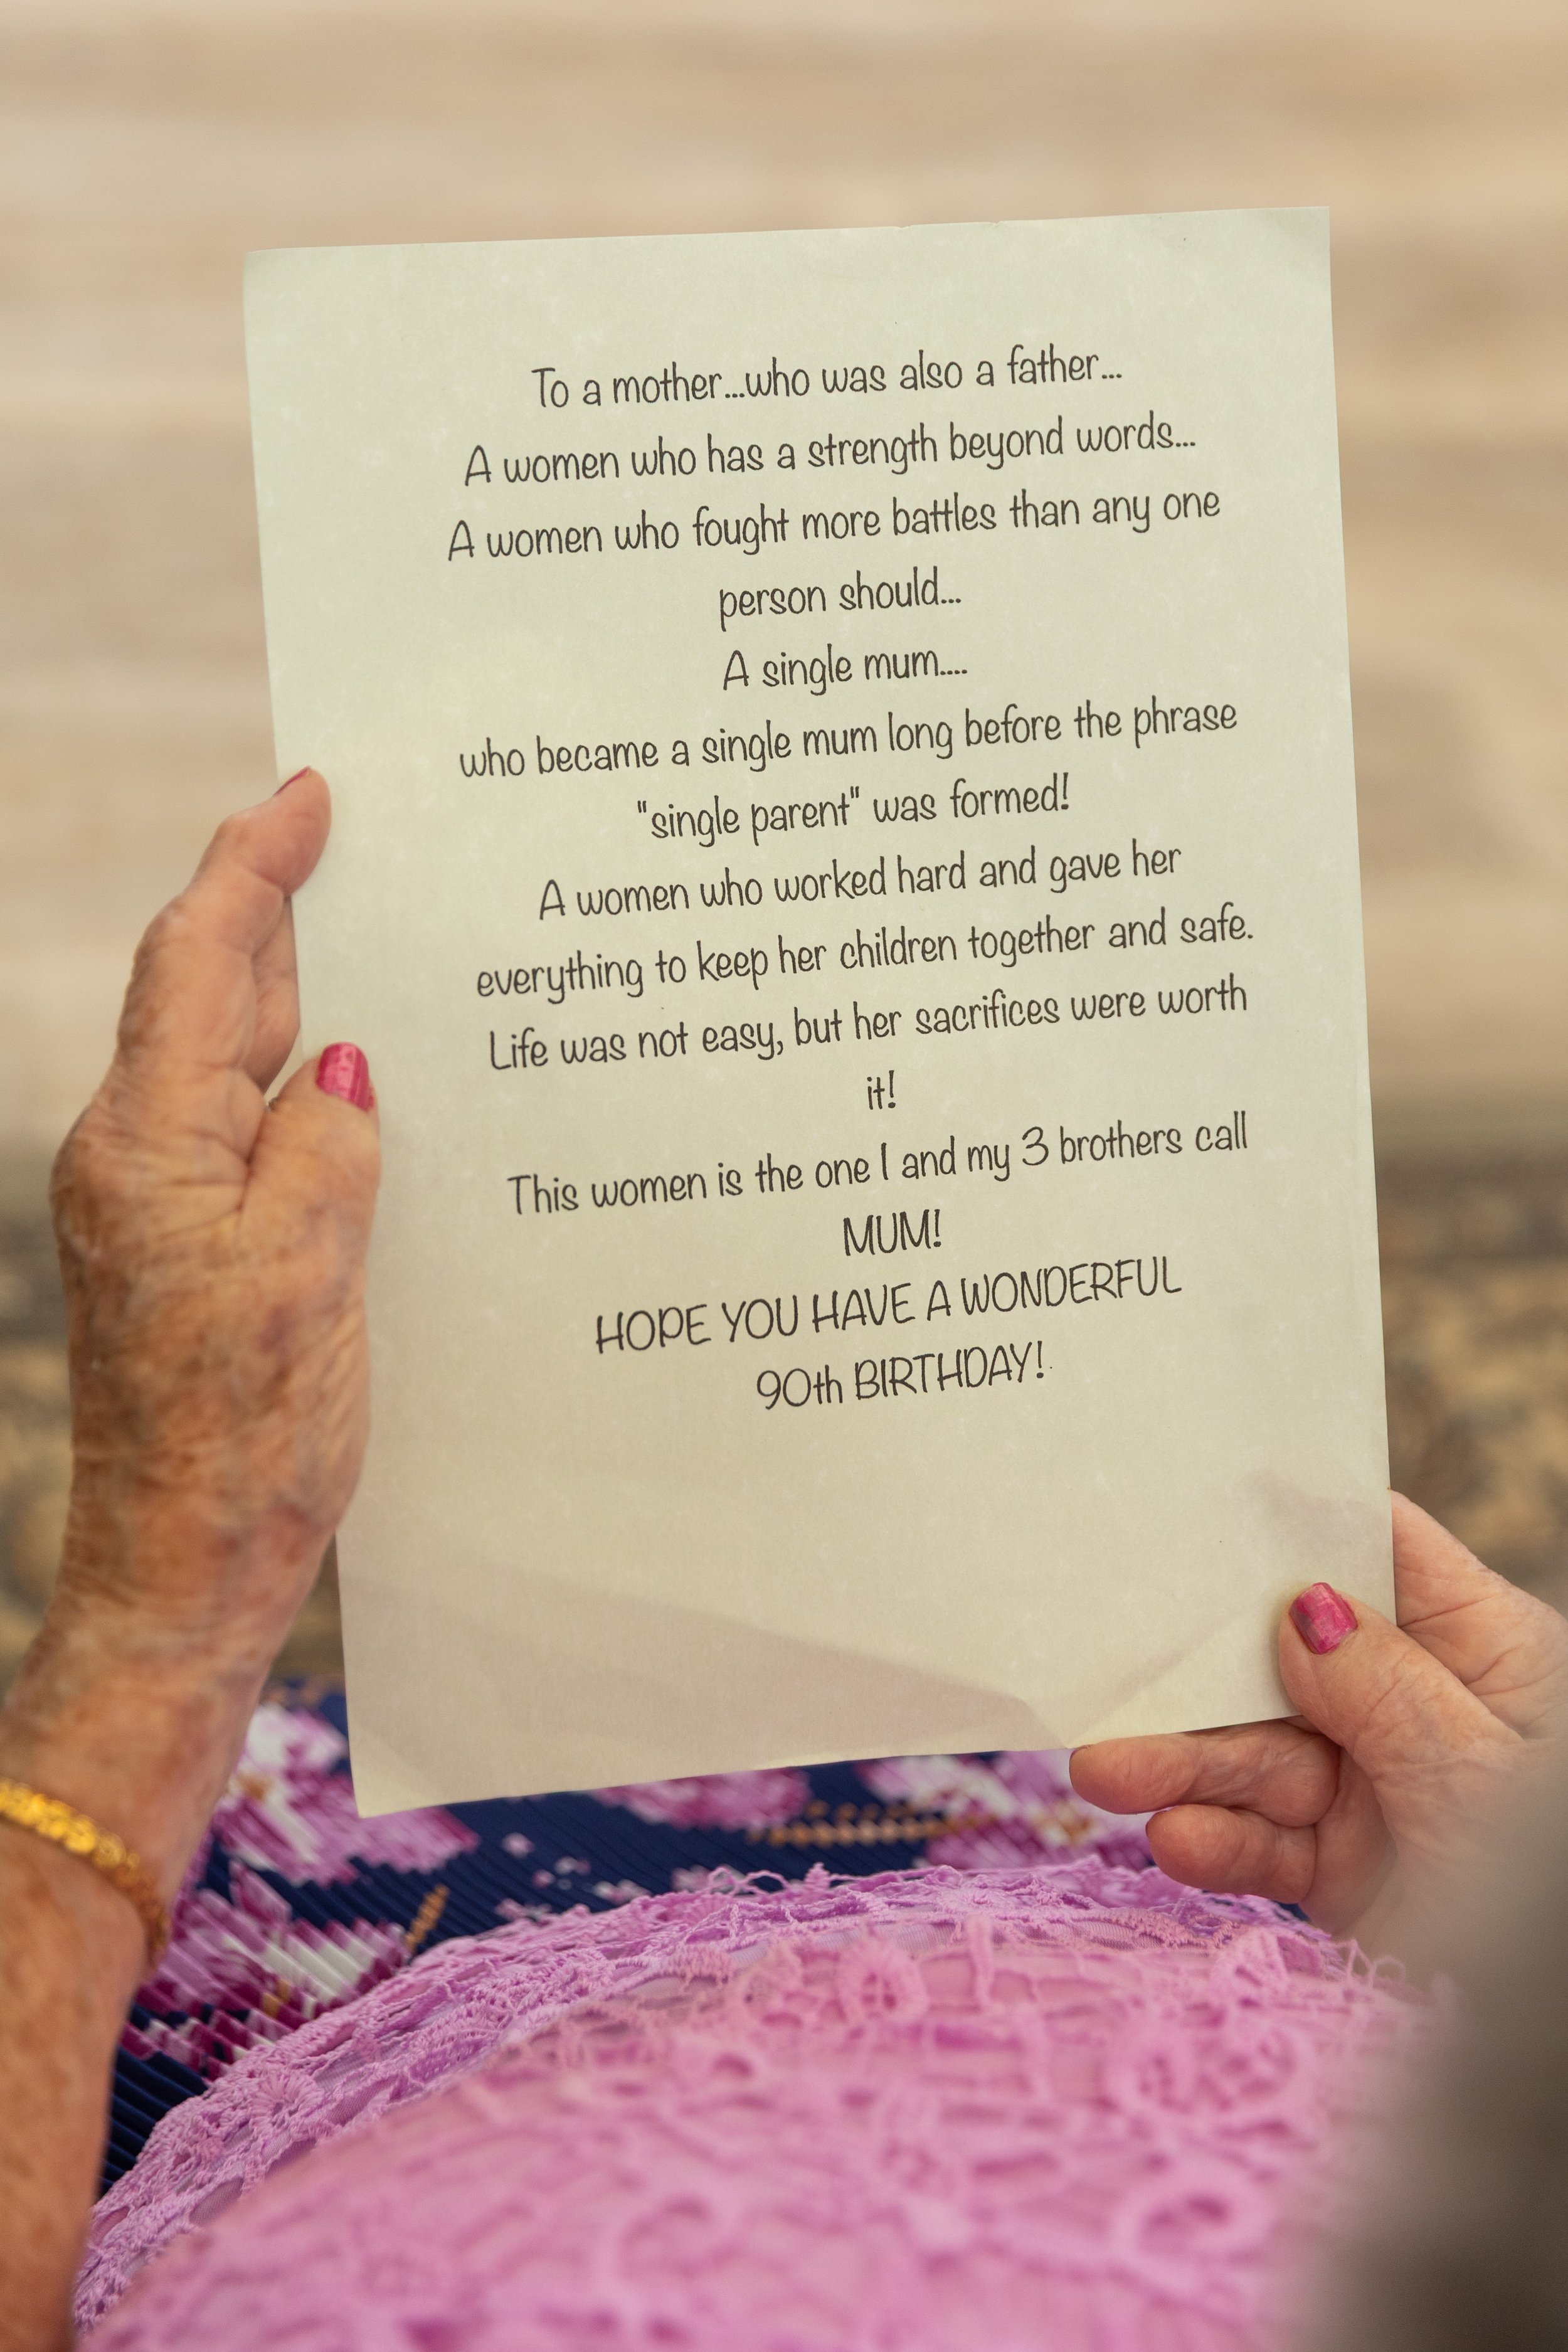 To a mother...who was also a father...
A women who has a strength beyond words...
A women who fought more battles than any one
person should...
A single mum....
who became a single mum long before the phrase
"single parent" was formed!
A women who worked hard and gave her
everything to keep her children together and safe.
Life was not easy, but her sacrifices were worth
it!
This women is the one I and my 3 brothers call
MUM!
HOPE YOU HAVE A WONDERFUL
90th BIRTHDAY!